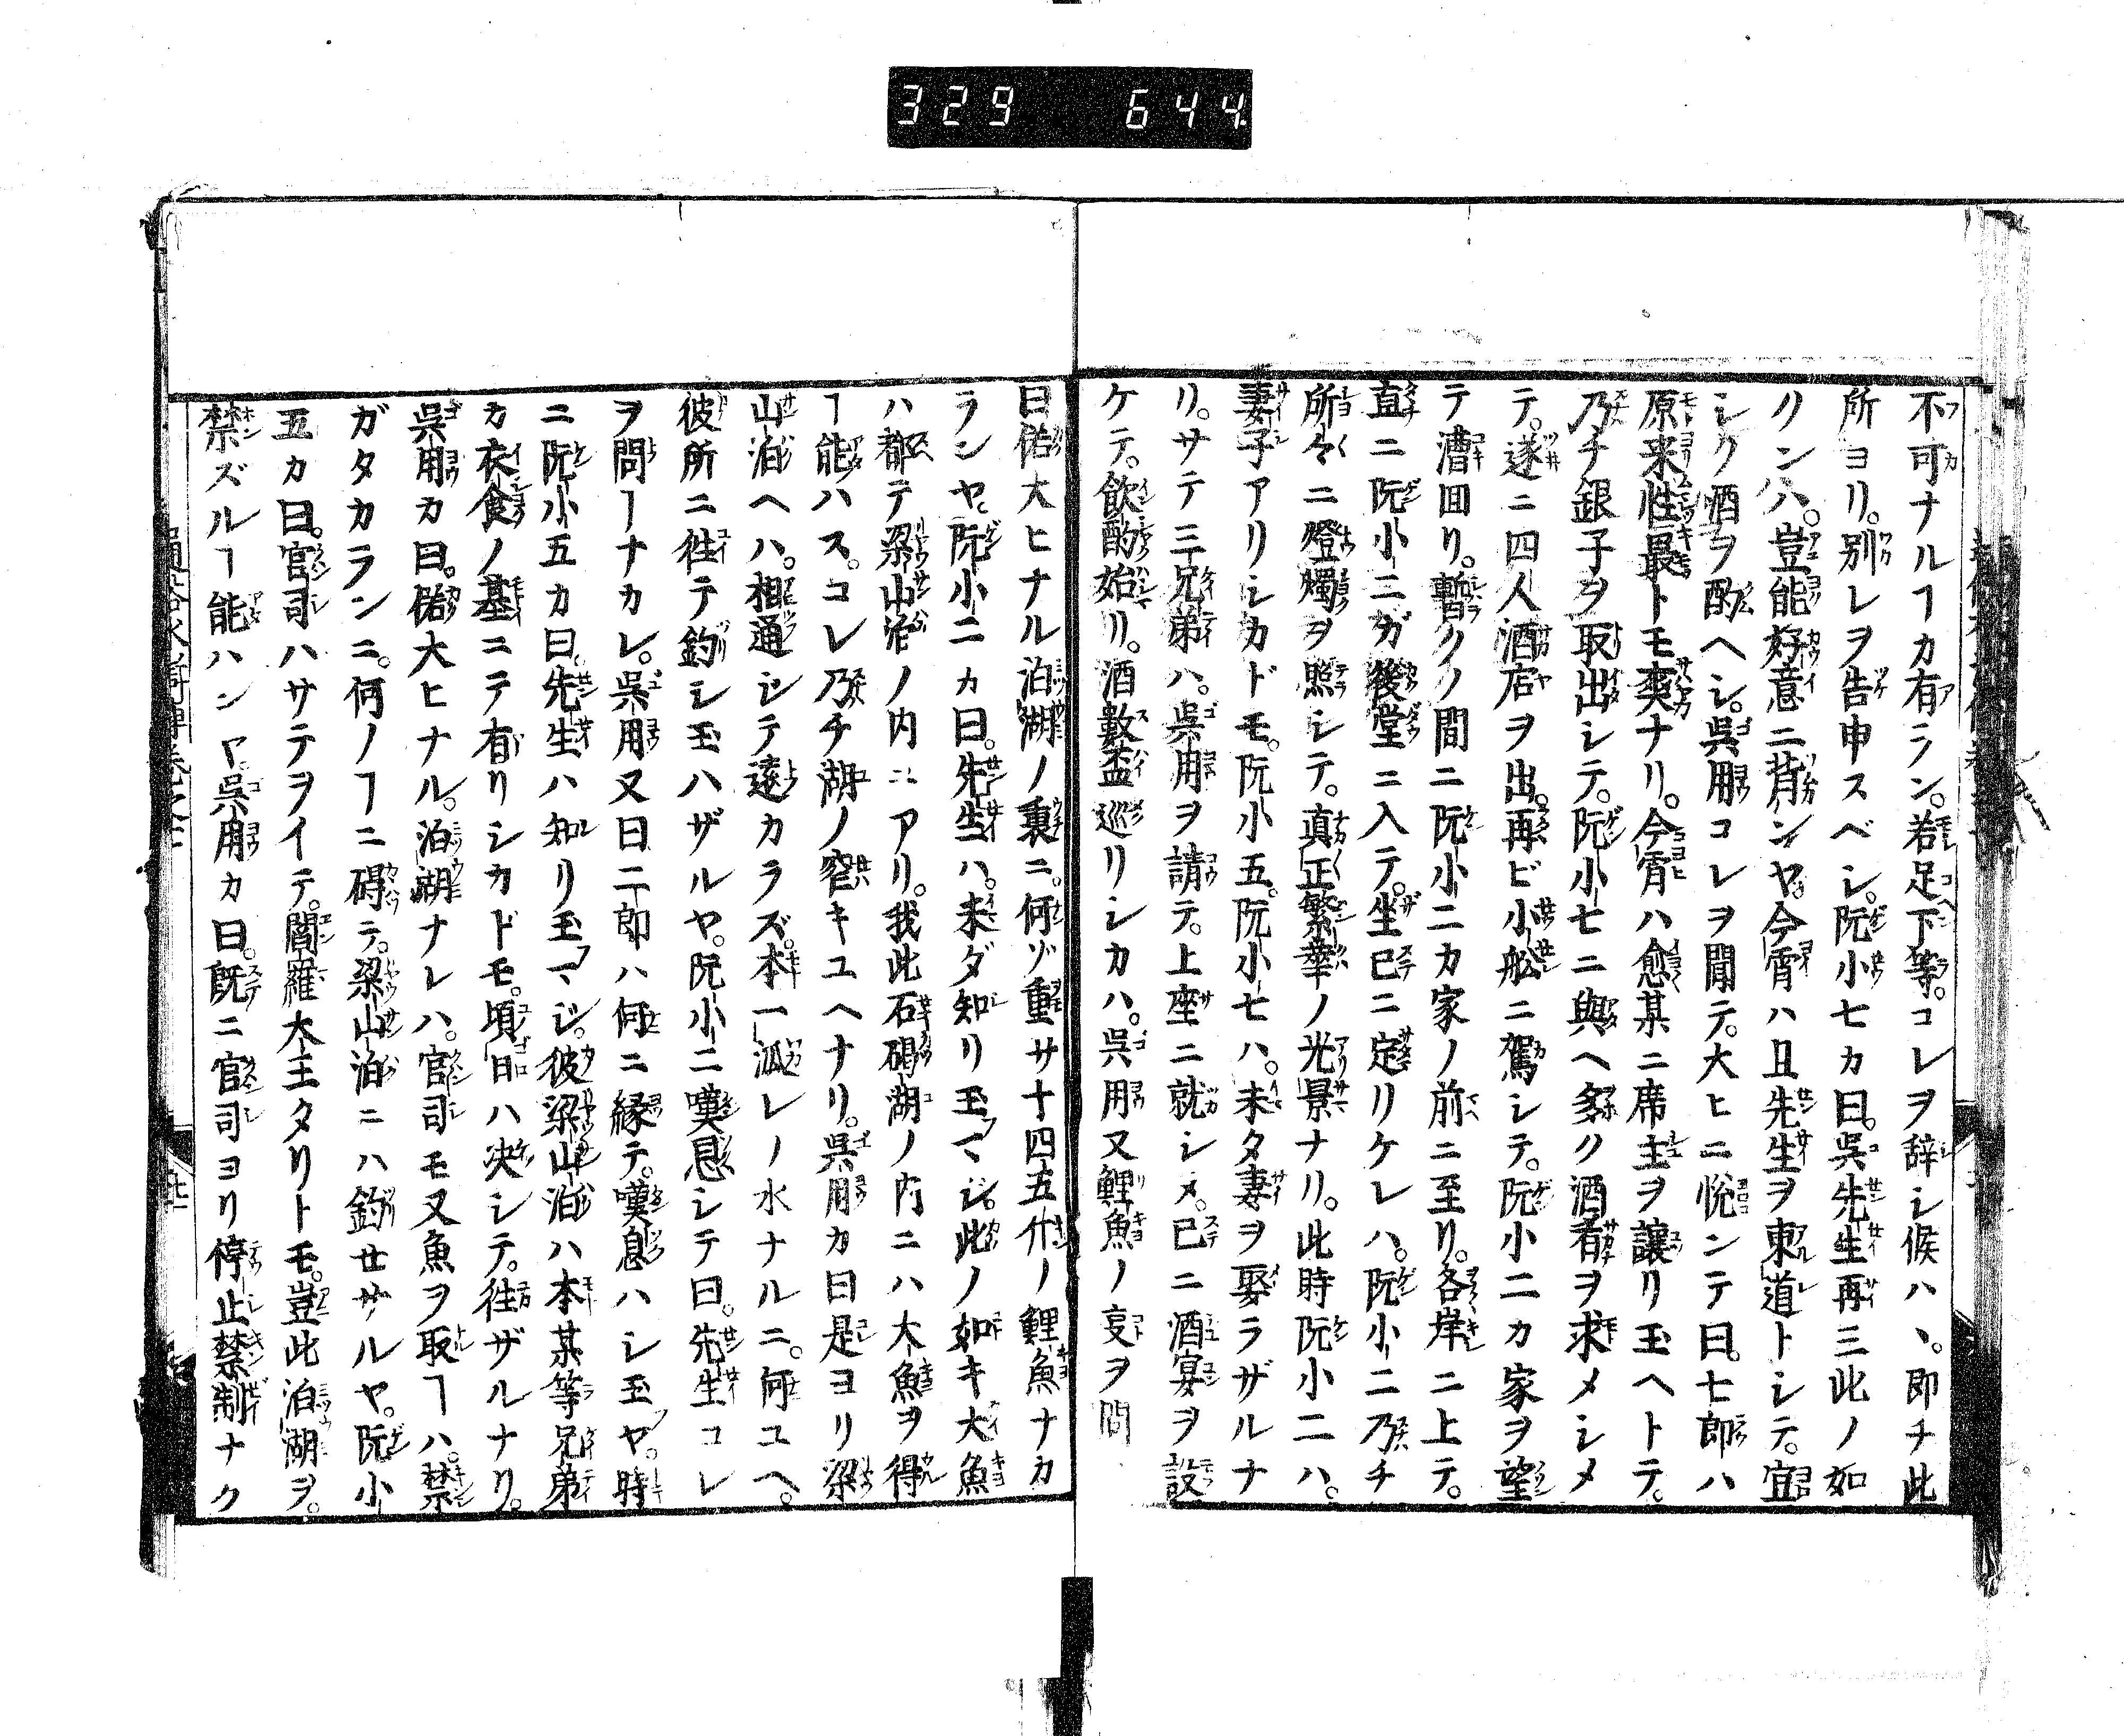 329 644
不可ナルヿカ有ラン。若足下等。コレヲ辞シ候ハヽ。即チ此
所ヨリ。別レヲ告申スベシ。阮小七カ曰。呉先生再三此ノ如
クンハ。豈能好意ニ背ンヤ。今霄ハ且先生ヲ東道トシテ。宜
シク酒ヲ酌ヘシ。呉用コレヲ聞テ。大ヒニ悦ンテ曰。七郎ハ
原来性最トモ爽ナリ。今霄ハ愈某ニ席主ヲ讓リ玉ヘトテ。
乃チ銀子ヲ取出シテ。阮小七ニ與ヘ多ク酒肴ヲ求メシメ
テ。遂ニ四人酒店ヲ出。再ビ小舩ニ駕シテ。阮小二カ家ヲ望
テ漕回リ。暫クノ間ニ阮小二カ家ノ前ニ至リ。各岸ニ上テ。
直ニ阮小二ガ後堂ニ入テ。坐已ニ定リケレハ。阮小二乃チ
所々ニ燈燭ヲ照シテ。真正繁華ノ光景ナリ。此時阮小二ハ。
妻子アリシカドモ。阮小五。阮小七ハ。未タ妻ヲ娶ラザルナ
リ。サテ三兄弟ハ。呉用ヲ請テ。上座ニ就シメ。已ニ酒宴ヲ設
ケテ。飲酌始リ。酒數盃巡リシカハ。呉用又鯉魚ノ叓ヲ問
曰偌大ヒナル泊湖ノ裏ニ。何ゾ重サ十四五斤ノ鯉魚ナカ
ランヤ。阮小二カ曰。先生ハ。未ダ知リ玉フマジ。此ノ如キ大魚
ハ都テ梁山泊ノ内ニアリ。我此石碣湖ノ内ニハ大魚ヲ得
ヿ能ハス。コレ乃チ湖ノ窄キユヘナリ。呉用カ曰是ヨリ梁
山泊ヘハ。相通シテ遠カラズ。本一派レノ水ナルニ。何ユヘ。
彼所ニ徃テ釣シ玉ハザルヤ。阮小二嘆息シテ曰。先生コレ
ヲ問ヿナカレ。呉用又曰二郎ハ何ニ縁テ。嘆息ハシ玉フヤ。時
ニ阮小五カ曰。先生ハ知リ玉フマジ。彼梁山泊ハ本某等兄弟
カ衣食ノ基ニテ有リシカドモ。頃日ハ决シテ。徃ザルナリ。
呉用カ曰。偌大ヒナル。泊湖ナレハ。官司モ又魚ヲ取ヿハ。禁
ガタカランニ。何ノヿニ碍テ。梁山泊ニハ釣セサルヤ。阮小
五カ曰。官司ハサテヲイテ。閻羅大王タリトモ。豈此泊湖ヲ。
禁ズルヿ能ハンヤ。呉用カ曰。既ニ官司ヨリ停止禁制ナク